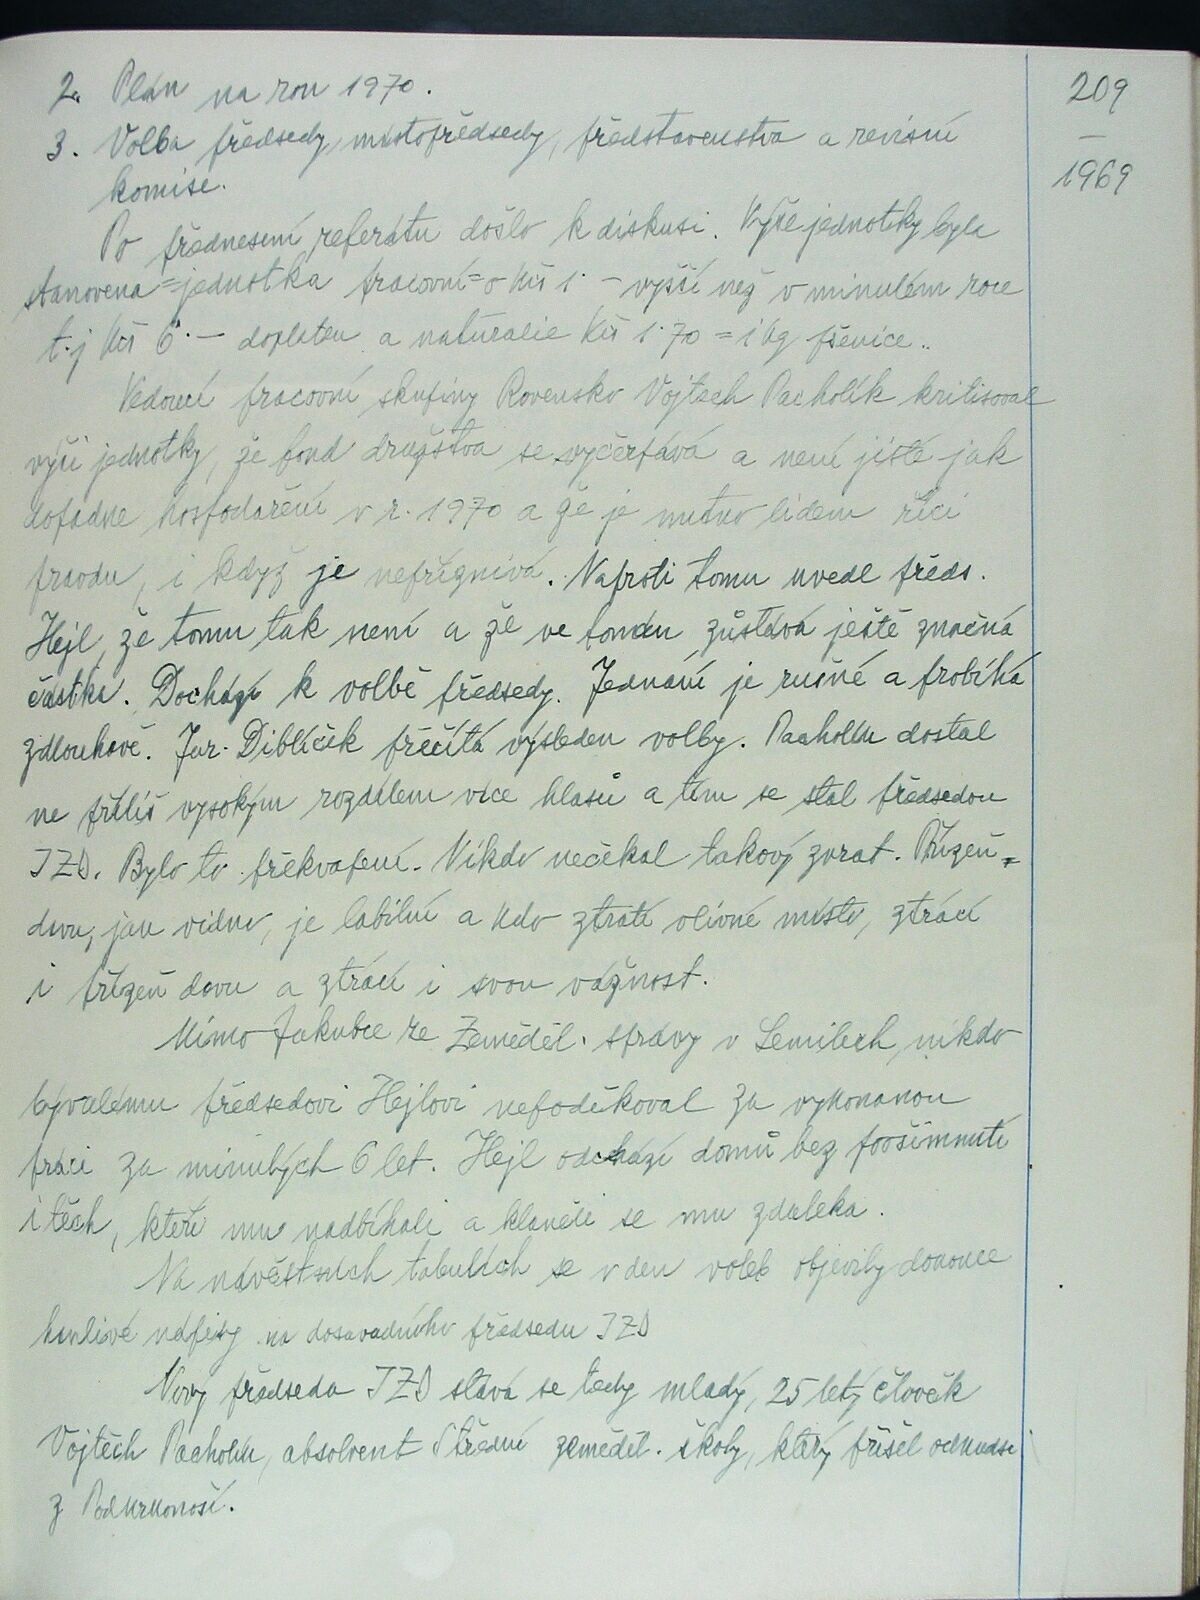 209
—
1969
2. Plán na rok 1970.
3. Volba předsedy, místopředsedy, představenstva a revisní
komise.
Po přednesení referátu došlo k diskusi. Výše jednotky byla
stanovena = jednotka pracovní = o Kčs 1·– vyšší než v minulém roce
t.j Kčs 6·— doplatek a naturalie Kčs 1·70 = 1 kg pšenice..
Vedoucí pracovní skupiny Rovensko Vojtěch Pacholík kritisoval
výši jednotky, že fond družstva se vyčerpává a není jisté jak
dopadne hospodaření v r. 1970 a že je nutno lidem říci
pravdu, i když je nepříznivá. Naproti tomu uvedl předs.
Hejl, že tomu tak není a že ve fondu zůstává ještě značná
částka. Dochází k volbě předsedy. Jednání je rušné a probíhá
zdlouhavě. Jar. Diblíček přečítá výsledek volby. Pacholík dostal
ne příliš vysokým rozdílem více hlasů a tím se stal předsedou
JZD. Bylo to překvapení. Nikdo nečekal takový zvrat. Přízeň
davu, jak vidno, je labilní a kdo ztratí vlivné místo, ztrácí
i přízeň davu a ztrácí i svou vážnost.
Mimo Jakubce ze Zeměděl. správy v Semilech, nikdo
bývalému předsedovi Hejlovi nepoděkoval za vykonanou
práci za minulých 6 let. Hejl odchází domů bez povšimnutí
i těch, kteří mu nadbíhali a klaněli se mu zdaleka.
Na návěstních tabulích se v den voleb objevily dokonce
hanlivé nápisy na dosavadního předsedu JZD
Nový předseda JZD stává se tedy mladý, 25 letý člověk
Vojtěch Pacholík, absolvent Střední zeměděl. školy, který přišel odkudsi
z Podkrkonoší.